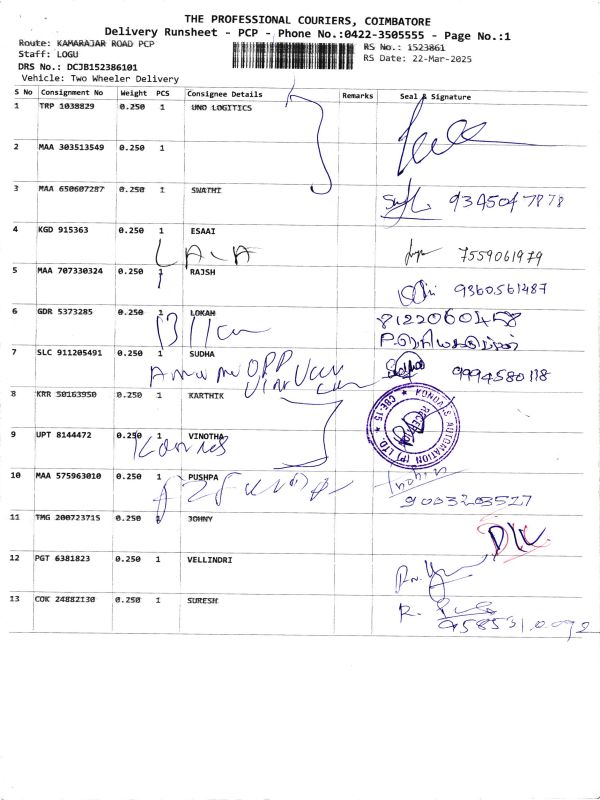 THE PROFESSIONAL COURIERS, COIMBATORE
Delivery Runsheet - PCP - Phone No.:0422-3505555 - Page No.:1
Route: KAMARAJAR ROAD PCP
RS No.: 1523861
Staff: LOGU
RS Date: 22-Mar-2025
DRS No.: DCJB152386101
Vehicle: Two Wheeler Delivery
S No Consignment No Weight PCS Consignee Details Remarks Seal & Signature
1 TRP 1038829 0.250 1 UNO LOGITICS
2 MAA 303513549 0.250 1
3 MAA 650607287 0.250 1 SWATHI
9345047878
4 KGD 915363 0.250 1 ESAAI
7559061979
5 MAA 707330324 0.250 1 RAJSH
9360561487
6 GDR 5373285 0.250 1 LOKAH
8122060458
7 SLC 911205491 0.250 1 SUDHA
9994580118
8 KRR 50163950 0.250 1 KARTHIK
KONDAAS AUTOMATION (P) LTD. ★ CBE-15 ★
9 UPT 8144472 0.250 1 VINOTHA
10 MAA 575963010 0.250 1 PUSHPA
9003203527
11 TMG 200723715 0.250 1 JOHNY
12 PGT 6381823 0.250 1 VELLINDRI
13 COK 24882130 0.250 1 SURESH